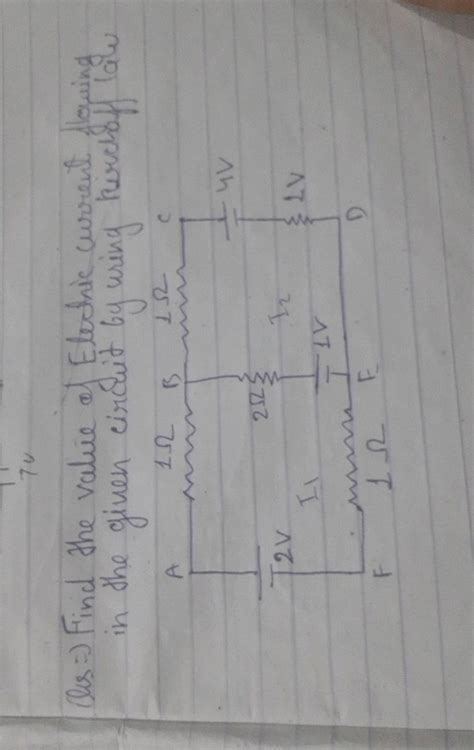 Qus => Find the value of Electric current flowing
in the given circuit by using Kirchoff law
A 1Ω B 1Ω C
4V
2Ω
2V
I1
I2
1V
1V
F
1Ω
E
D